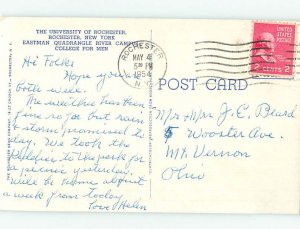 THE UNIVERSITY OF ROCHESTER,
ROCHESTER, NEW YORK
EASTMAN QUADRANGLE RIVER CAMPUS
COLLEGE FOR MEN
ROCHESTER
MAY 4
5 PM
1954
N
UNITED STATES
POSTAGE
2 CENTS 2
POST CARD
Hi Folks
Hope you
both well.
The weather has been
fine so far but rain
& storms promised to
day. We took the
to the park for
a picnic yesterday.
Will be home about
a week from today
Love Helen
Mr & Mrs J. C. Beard
5 Wooster Ave.
Mt. Vernon
Ohio